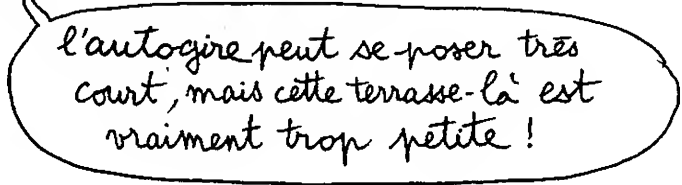 l'autogire peut se poser très
court, mais cette terrasse-là est
vraiment trop petite !